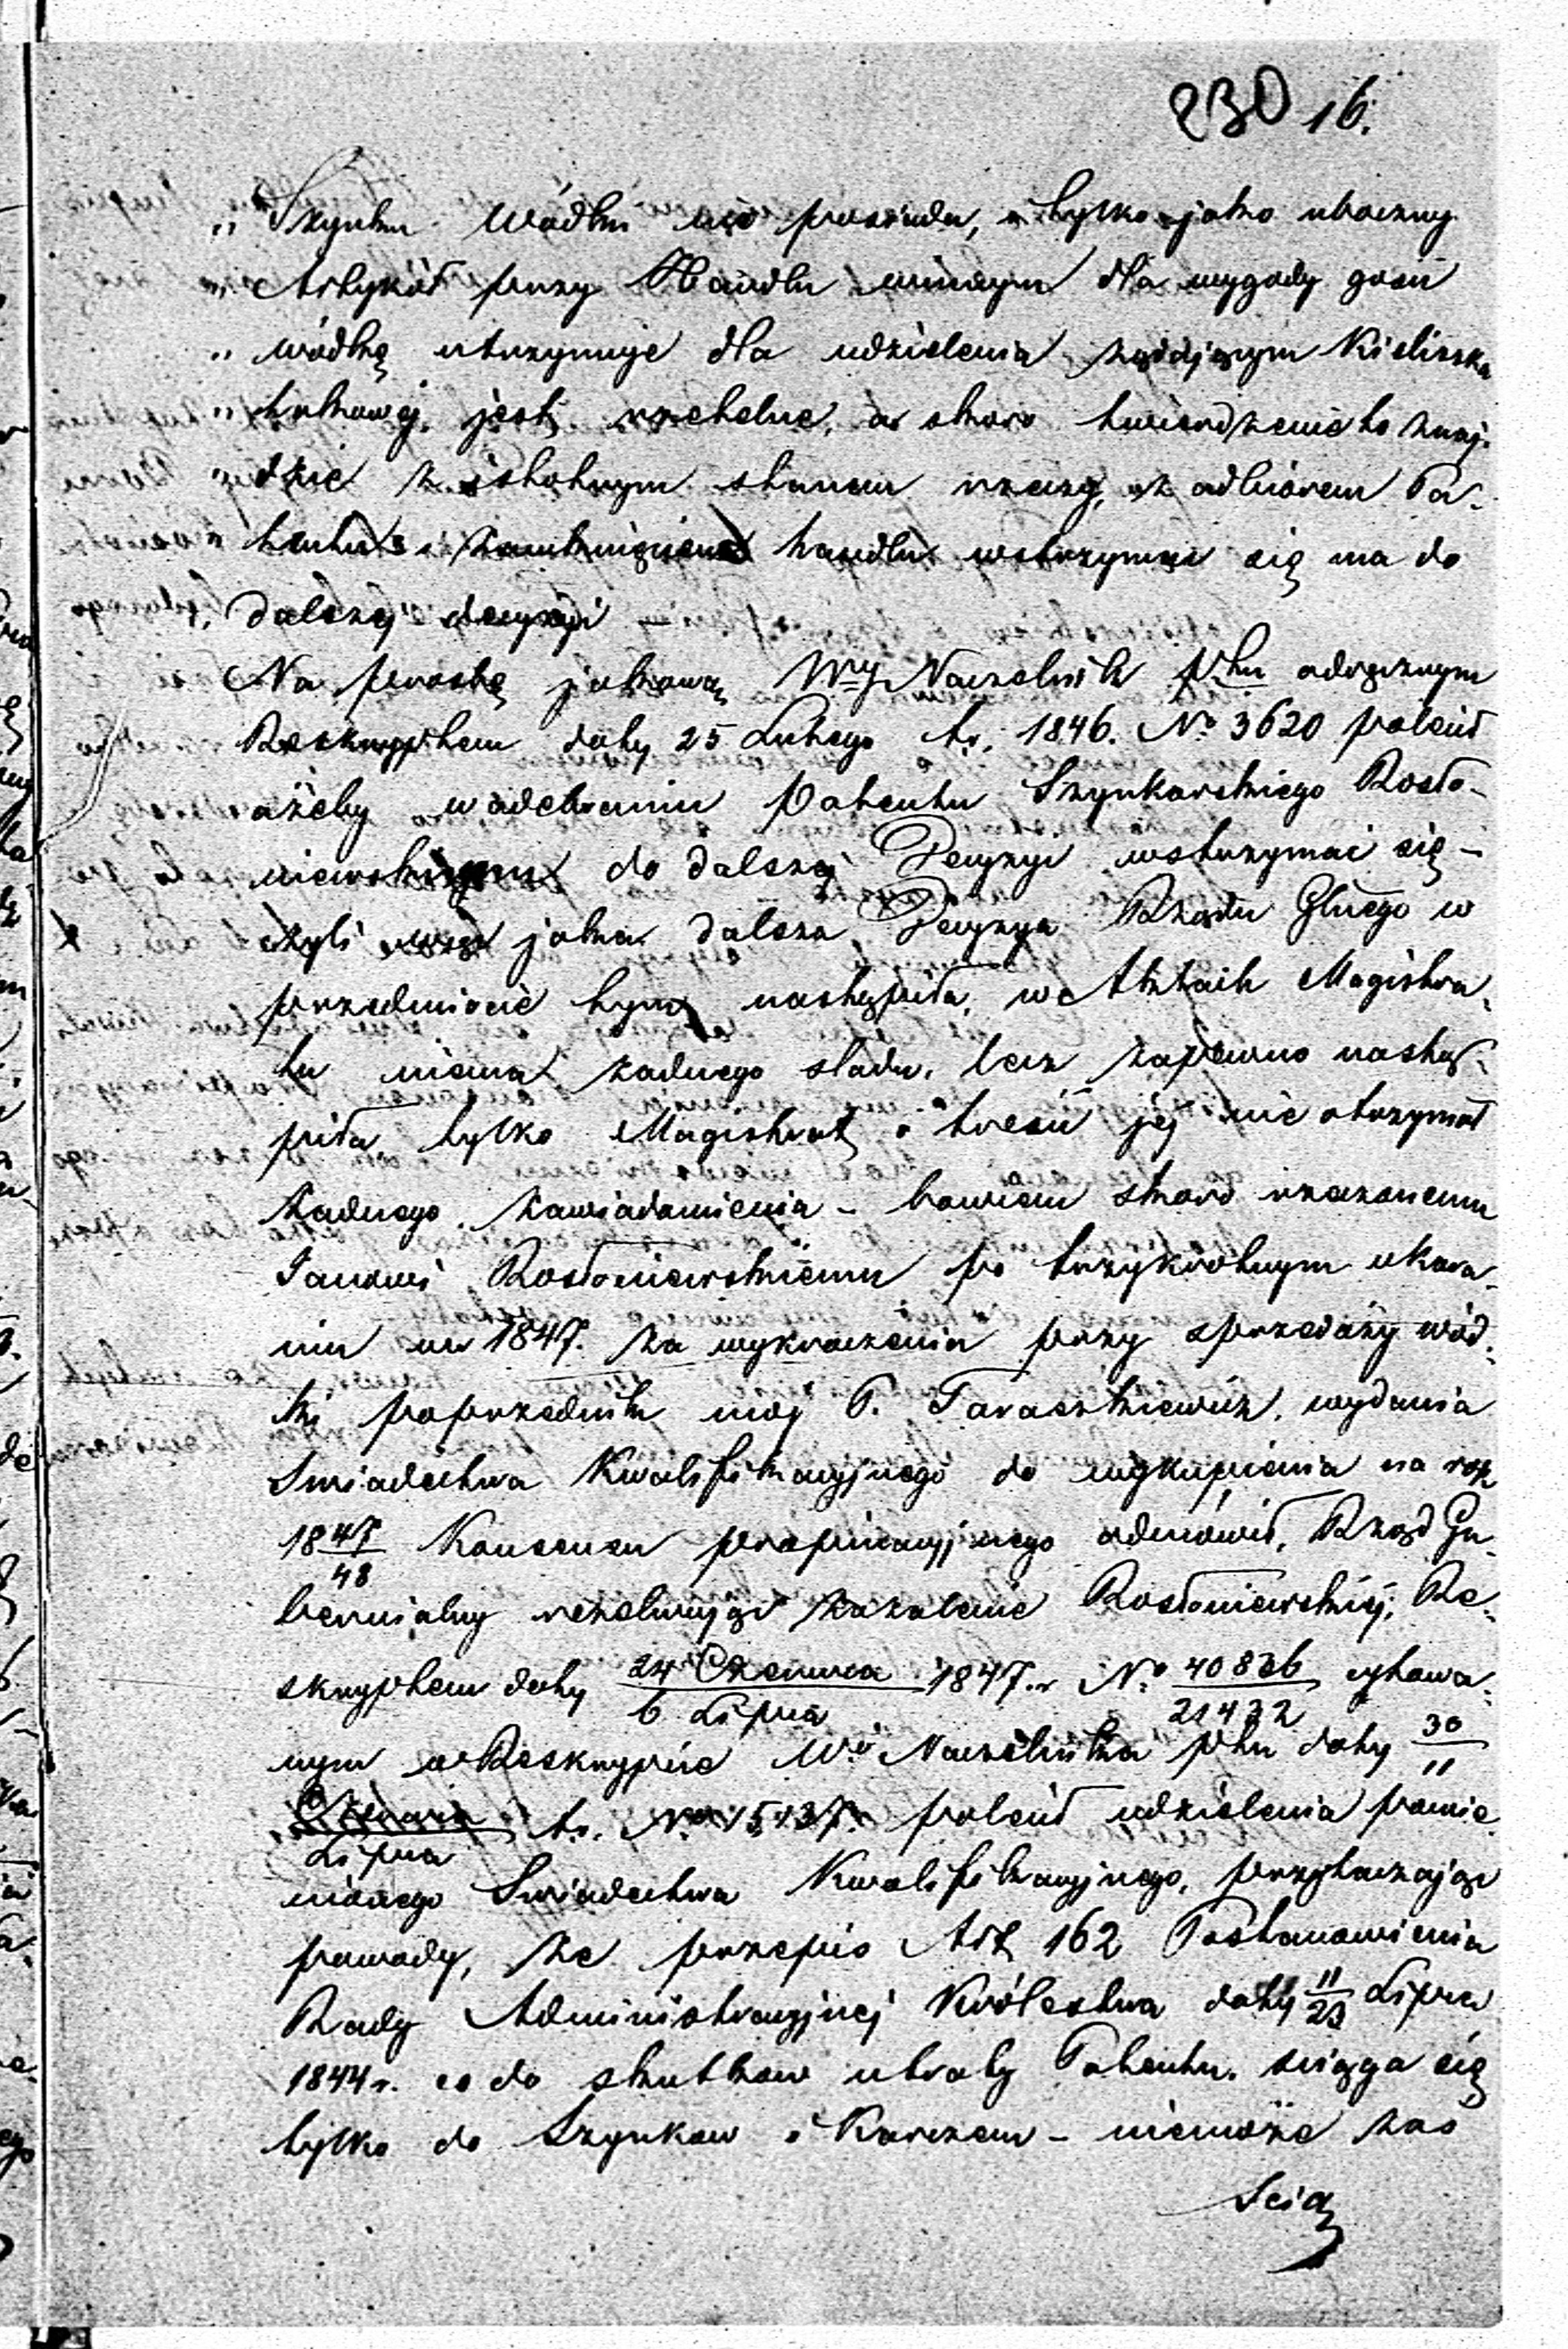 230 16.
„ Szynku Wódki nie posiada, a tylko jako uboczny
„ Artykół przy Handlu winnym dla wygody gości
„ wódkę utrzymuje dla udzielenia żądającym Kieliszka
„ takowej, jest rzetelne, a skoro twierdzenie to znaj-
„ dzie z istotnym stanem rzeczy, z odbiorem Pa-
tentu i zamknięciem handlu wstrzymać się ma do
„ dalszej decyzyi –
Na prośbę jakową Wny Naczelnik Ptu odręcznym
Reskryptem daty 25 Lutego t.r. 1846. No 3620 polecił
ażeby w odebraniu Patentu Szynkarskiego Rosło-
niewskiemu do dalszej Decyzyi wstrzymać się –
czyli jaka dalsza Decyzya Rządu Glnego w
przedmiocie tym nastąpiła, w Aktach Magistra-
tu niema żadnego śladu, lecz zapewno nastą-
piła tylko Magistrat o treści jej nie otrzymał
żadnego zawiadomienia – bowiem skoro rzeczonemu
Janowi Rosłoniewskiemu po trzykrotnym ukara-
niu w r 1847. za wykroczenia przy sprzedaży wód-
ki poprzednik mój P. Taraszkiewicz, wydania
Swiadectwa Kwalifikacyjnego do wykupienia na rok
1847/48 Konsensu propinacyjnego odmówił, Rząd Gu-
bernialny rezolwując zażalenie Rosłoniewskiej, Re-
skryptem daty 24 Czerwca / 6 Lipca 1847 r. No 40836/21432 cytowa-
nym w Reskrypcie Wo Naczelnika Ptu daty 30/11
Czerwca / Lipca t.r. No 15137. polecił udzielenia pomie-
nionego Swiadectwa Kwalifikacyjnego, przytaczając
powody, że przepis Art 162 Postanowienia
Rady Administracyjnej Królestwa daty 11/23 Lipca
1844 r. co do skutków utraty Patentu, ściąga się
tylko do Szynków i Karczem – niemoże zaś
ścią